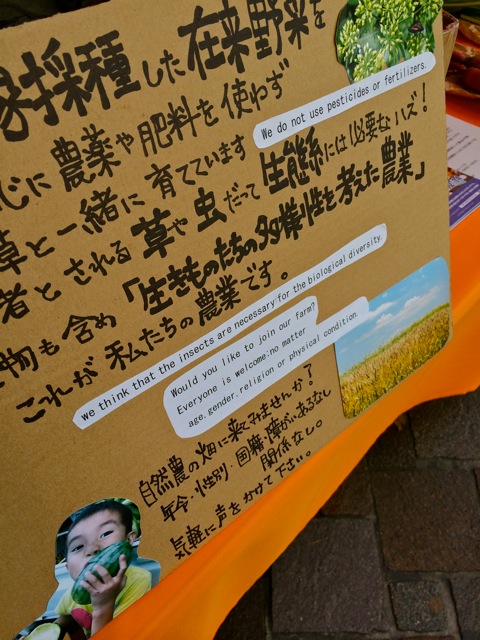 家採種した在来野菜を
じに農薬や肥料を使わず
We do not use pesticides or fertilizers.
草と一緒に育てています
者とされる草や虫だって生態系には必要なハズ!
物も含め「生きものたちの多様性を考えた農業」
これが私たちの農業です。
we think that the insects are necessary for the biological diversity.
Would you like to join our farm?
Everyone is welcome:no matter
age,gender,religion or physical condition.
自然農の畑に来てみませんか?
年令・性別・国籍・障がいあるなし
関係なし。
気軽に声をかけて下さい。